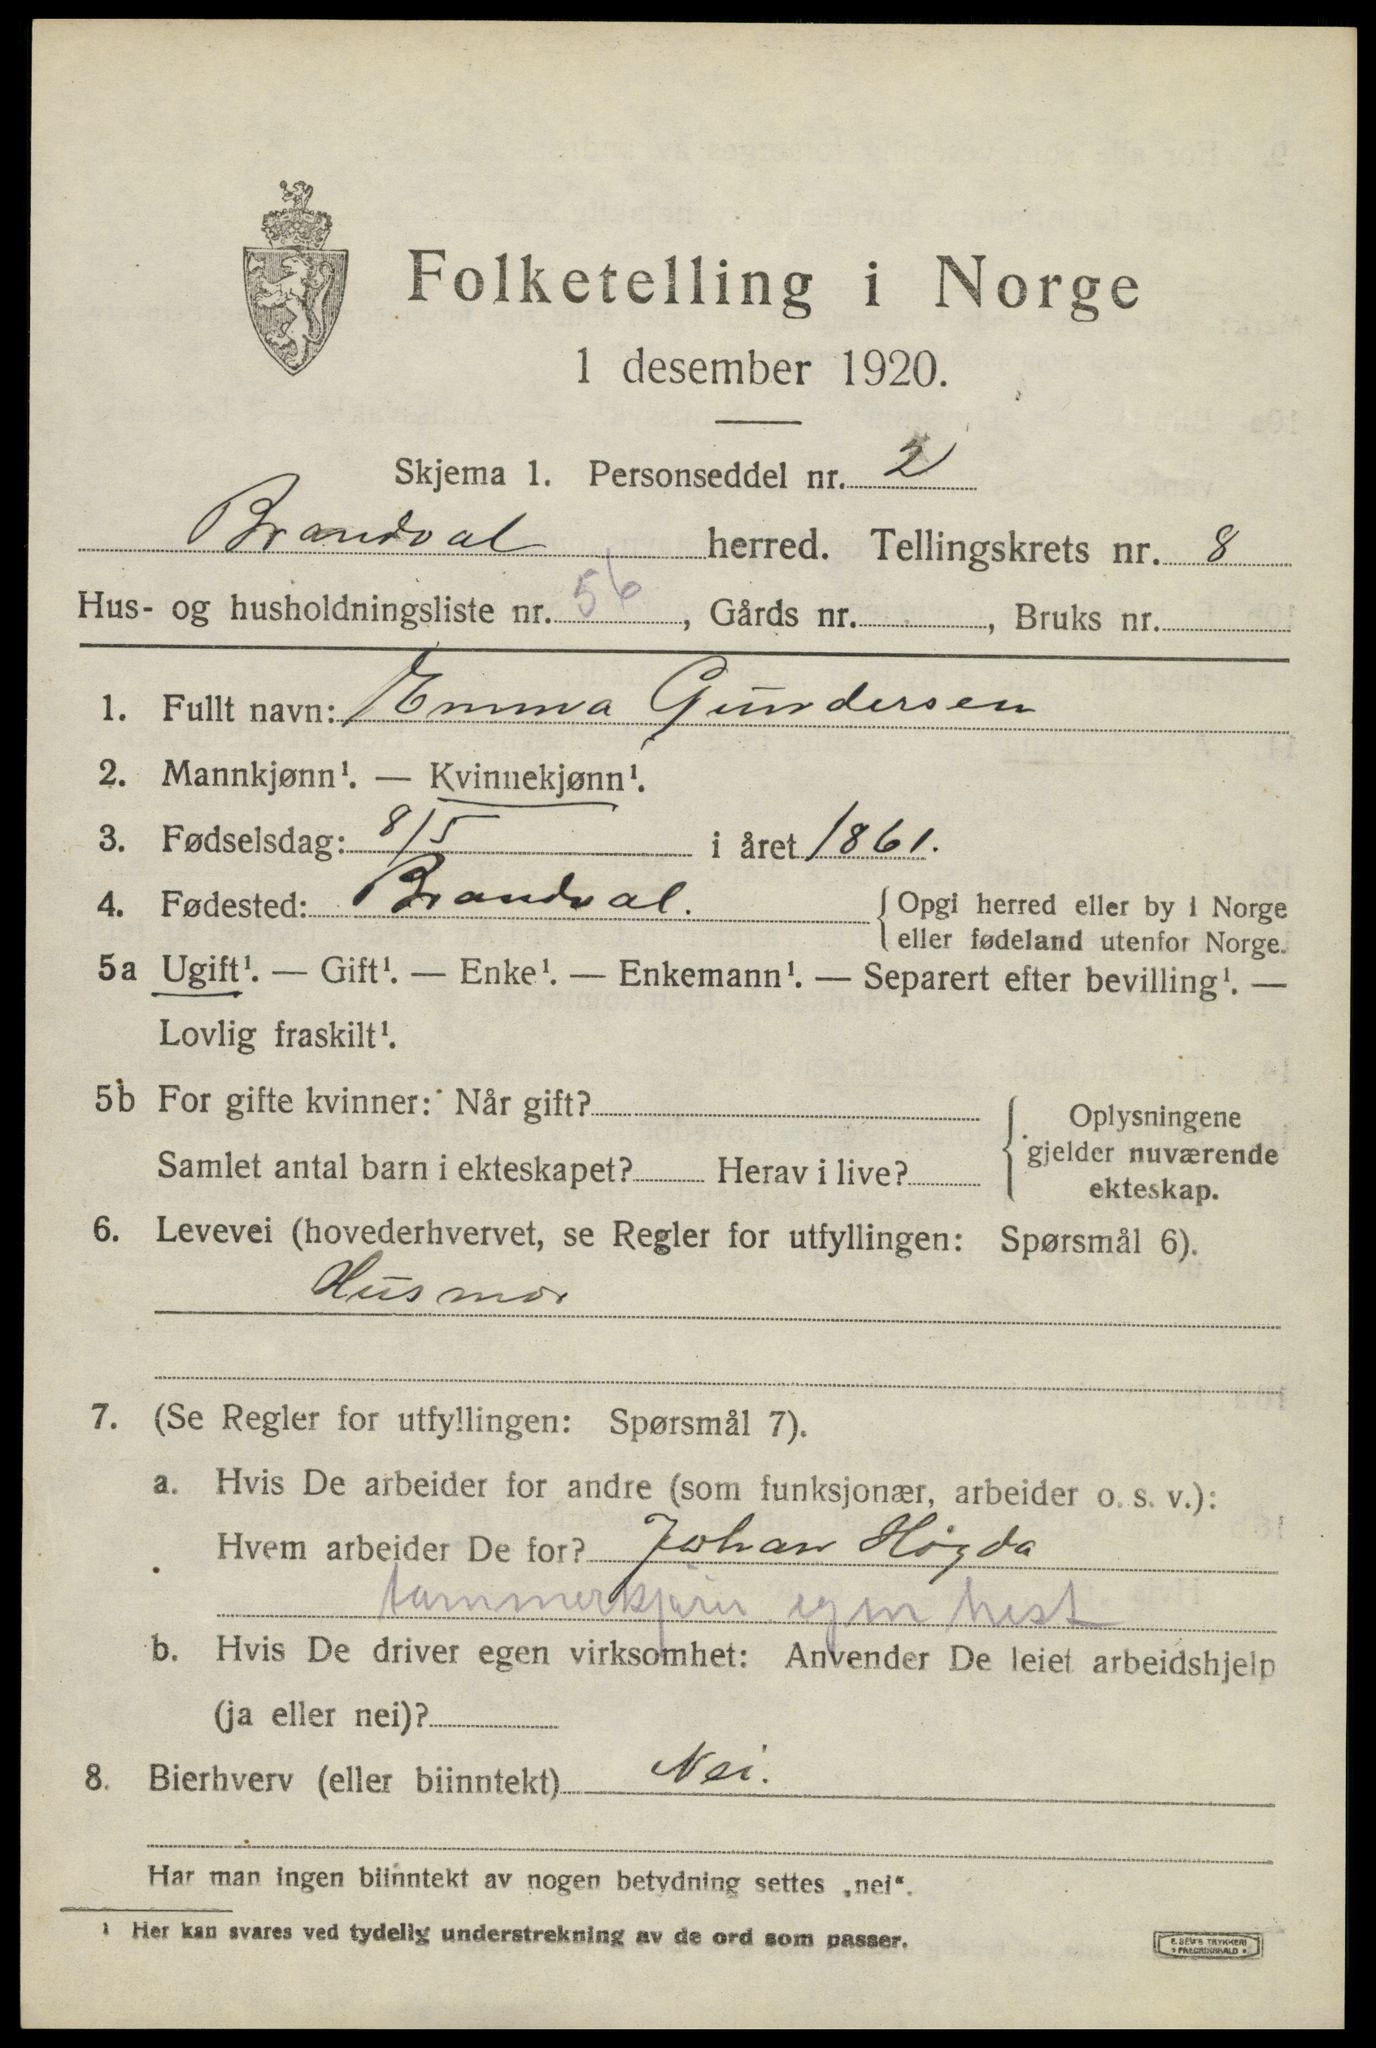 Folketelling i Norge
1 desember 1920.
Skjema 1. Personseddel nr. 2
Brandval herred. Tellingskrets nr. 8
Hus- og husholdningsliste nr. 56, Gårds nr. , Bruks nr.
1. Fullt navn: Emma Gundersen
2. Mannkjønn¹. — Kvinnekjønn¹.
3. Fødselsdag: 8/5 i året 1861.
4. Fødested: Brandval. { Opgi herred eller by i Norge
eller fødeland utenfor Norge.
5a Ugift¹. — Gift¹. — Enke¹. — Enkemann¹. — Separert efter bevilling¹. —
Lovlig fraskilt¹.
5b For gifte kvinner: Når gift? { Oplysningene
gjelder nuværende
ekteskap.
Samlet antal barn i ekteskapet? Herav i live?
6. Levevei (hovederhvervet, se Regler for utfyllingen: Spørsmål 6).
Husmor
7. (Se Regler for utfyllingen: Spørsmål 7).
a. Hvis De arbeider for andre (som funksjonær, arbeider o. s. v.):
Hvem arbeider De for? Johan Högda
tømmerkjører egen hest
b. Hvis De driver egen virksomhet: Anvender De leiet arbeidshjelp
(ja eller nei)?
8. Bierhverv (eller biinntekt) Nei.
Har man ingen biinntekt av nogen betydning settes „nei“.
¹ Her kan svares ved tydelig understrekning av de ord som passer.
E. SEM'S TRYKKERI
FREDRIKSHALD